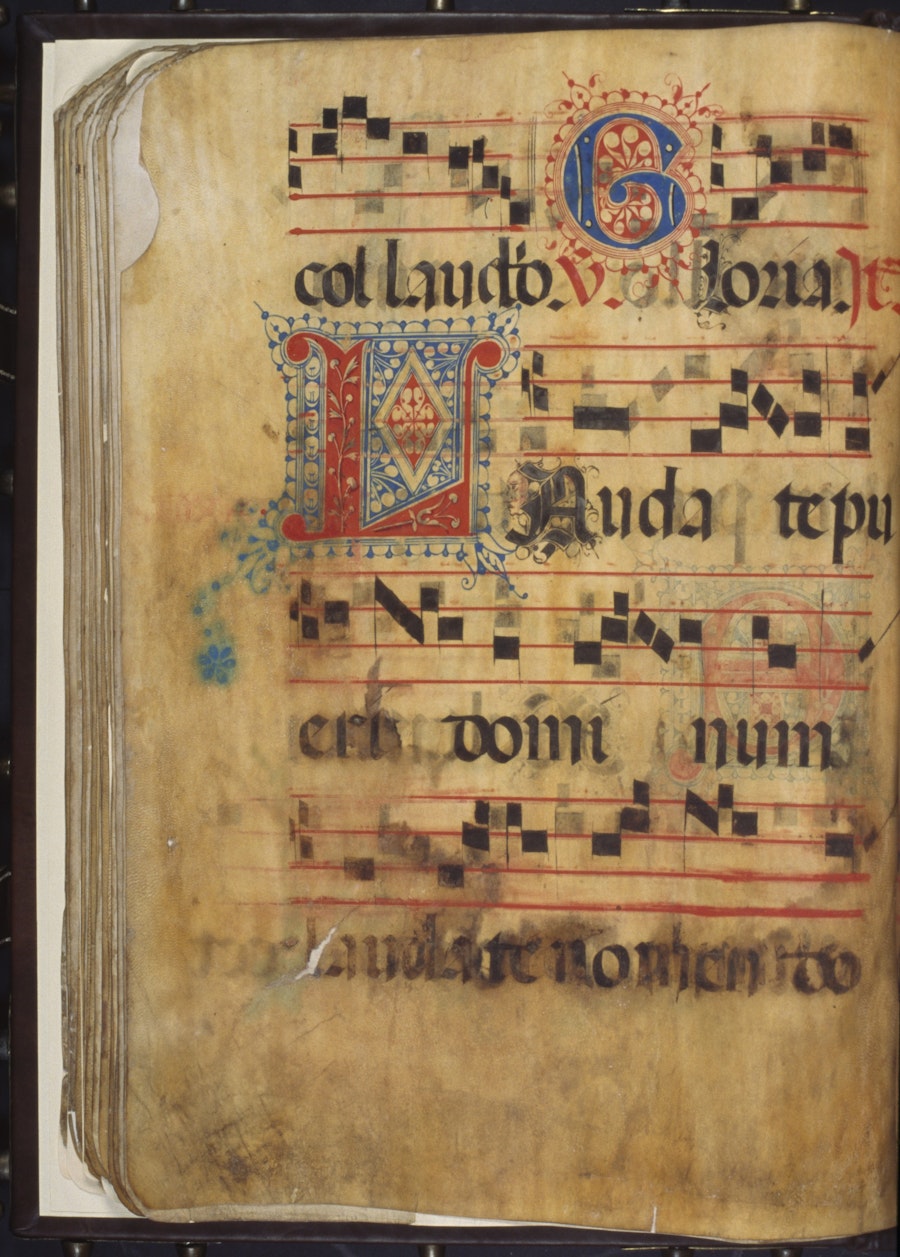 col laudt̄o. V. Gloria. It.
LAuda te pu
eri domi num
laudate nomen do